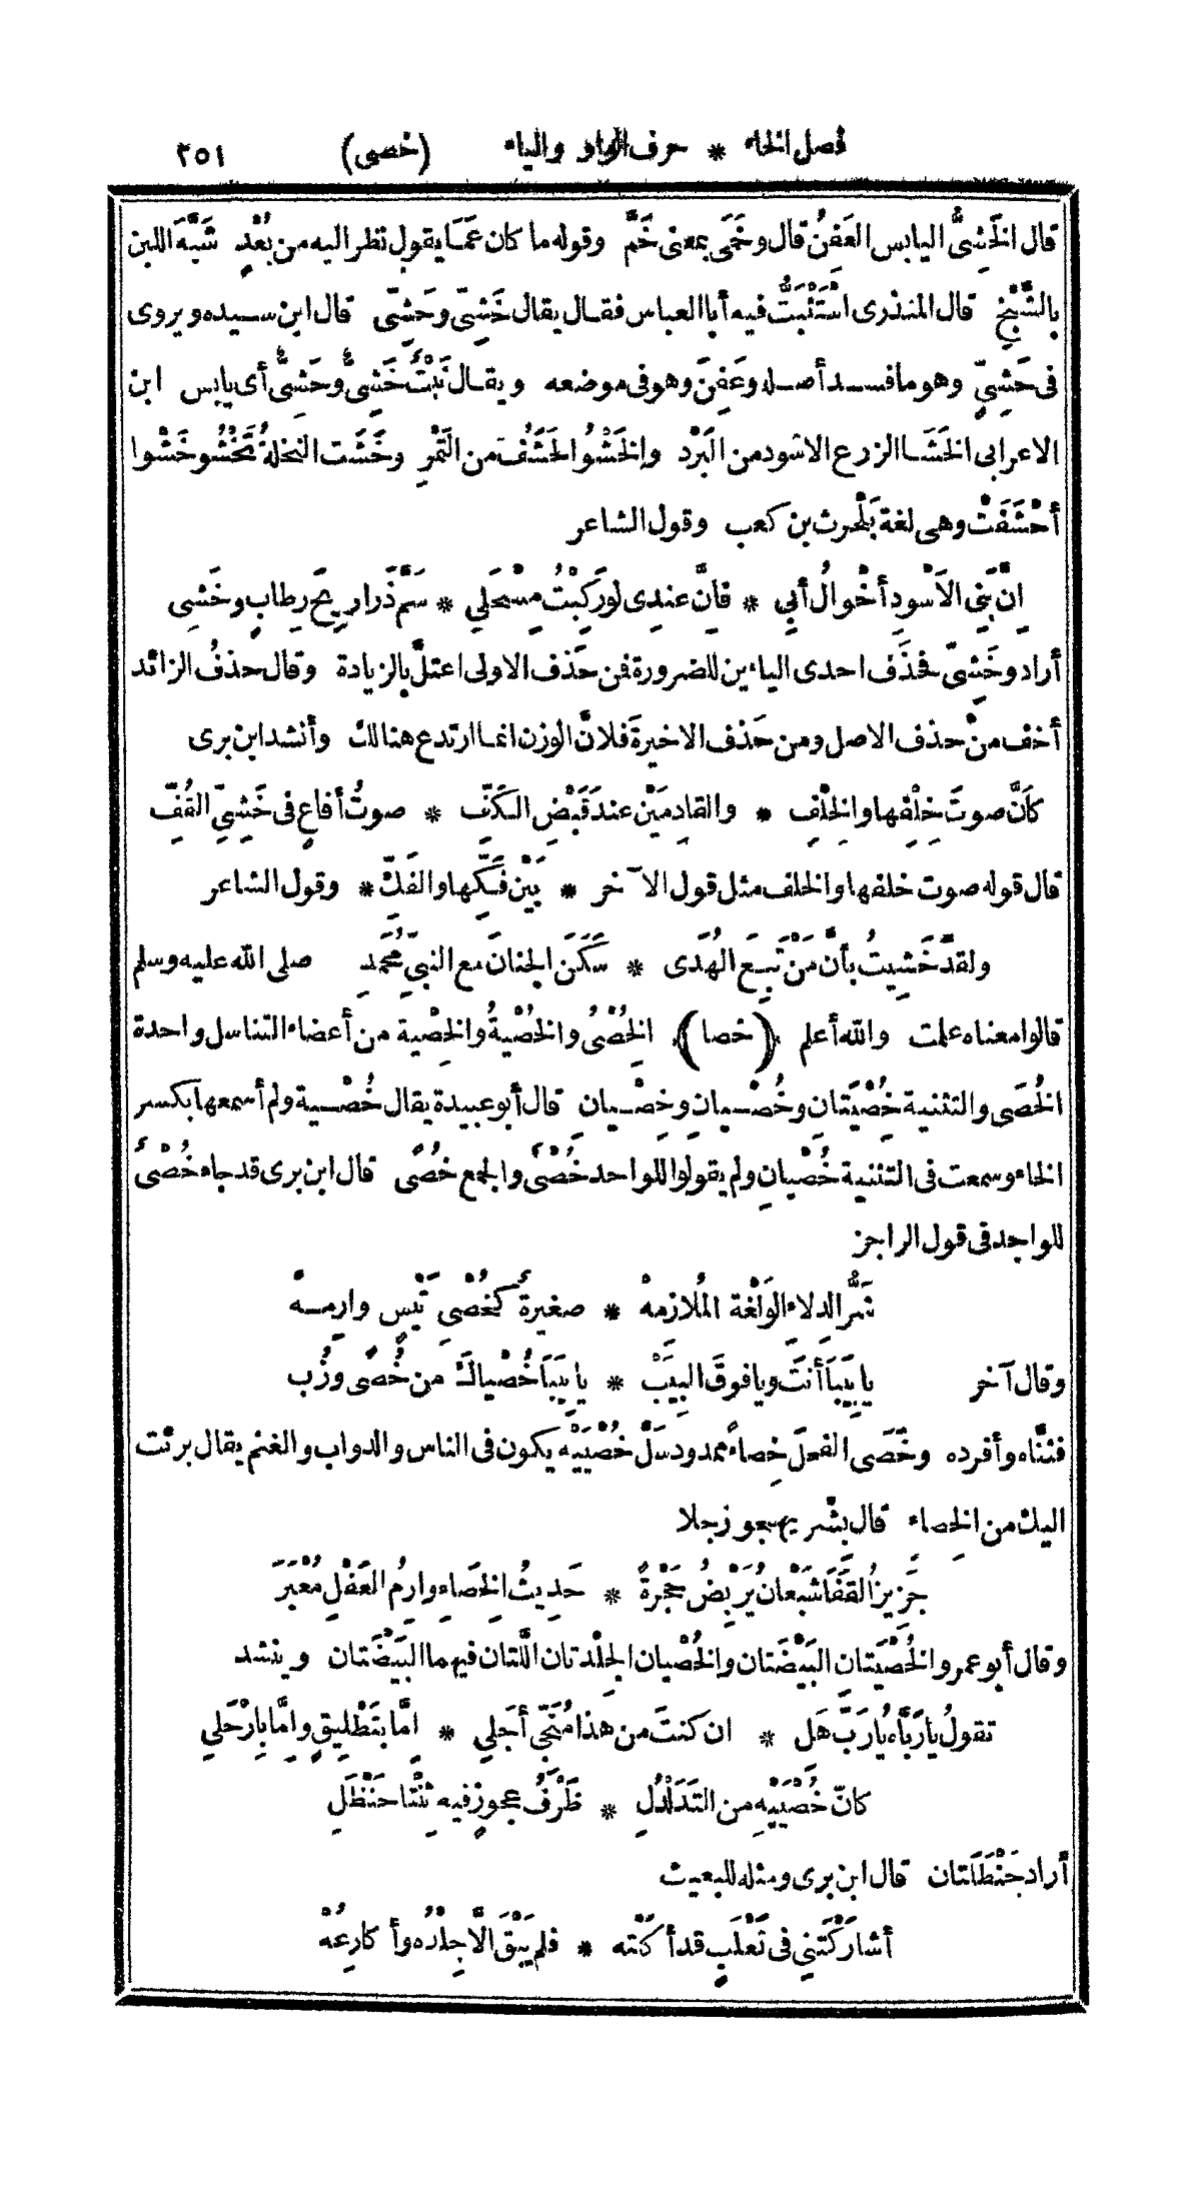 فصل الخاء * حرف الواو والياء (خصى) ٢٥١
قال الخَشِيُّ اليابس العَفِنُ قال وخَمَى بمعنى خَمَّ وقوله ما كان عَمَا يقول نظر اليه من بُعْدٍ شَبَّهَ اللبن
بالشَّيْخ قال المنذرى اسْتَثْبَتُّ فيه أبا العباس فقال يقال خَشِىّ وحَشِىّ قال ابن سيده ويروى
فى حَشِىّ وهو ما فسد أصله وعَفِنَ وهو فى موضعه ويقال نَبْتٌ خَشِىٌّ وحَشِىٌّ أى يابس ابن
الاعرابى الخَشَا الزرع الاسْود من البَرْد والخَشْوُ الحَشَفُ من التَّمْرِ وخَشَت النخلةُ تَخْشُو خَشْوا
أحْشَفَتْ وهى لغة بَلْحرث بن كعب وقول الشاعر
اِنَّ بَنِى الاَسْودِ أخْوالُ أبِى * فاِنَّ عندِى لو رَكِبْتُ مِسْحَلِى * سَمَّ ذَراريحَ رِطابٍ وخَشِى
أراد وخَشِىّ فحذَفَ احدى الياءين للضرورة فمن حَذف الاولى اعتلَّ بالزيادة وقال حذفُ الزائد
أخف منْ حذف الاصل ومن حَذف الاخيرةَ فلانَّ الوزن انما ارتدع هنالك وأنشد ابن برى
كاَنَّ صوتَ خِلْفِها والخِلْفِ * والقادِمَيْن عندَ قَبْضِ الكَفِّ * صوتُ أفاعٍ فى خَشِىِّ القُفِّ
قال قوله صوت خلفها والخلف مثل قول الآخر * بَيْنَ فَكِّها والفَكِّ * وقول الشاعر
ولقدْ خَشِيتُ بأنَّ مَنْ تَبِعَ الهُدَى * سَكَنَ الجنانَ مع النبىِّ مُحَمَّدِ صلى الله عليه وسلم
قالوا معناه علمت والله أعلم (خصا) الخُصْىُ والخُصْيةُ والخِصْية من أعضاء التناسل واحدة
الخُصَى والتثنية خُصْيَتَانِ وخُصْيانِ وخِصْيانِ قال أبو عبيدة يقال خُصْية ولم أسمعها بكسر
الخاء وسمعت فى التثنية خُصْيانِ ولم يقولوا للواحد خُصْىٌ والجمع خُصًى قال ابن برى قد جاء خُصْىٌ
للواحد فى قول الراجز
شَرُّ الدِلاءِ الوَلْغة المُلازمهْ * صغيرةٌ كَخُصْىِ تَيْسٍ وارِمهْ
وقال آخر يا بِيَبَا أنتَ ويا فوقَ البِيَبْ * يا بِيَبَا خُصْياكَ من خُصًى وزُب
فثنَّاه وأفرده وخَصَى الفحلَ خِصاءً ممدود سَلَّ خُصْيَيْه يكون فى الناس والدواب والغنم يقال برئت
اليك من الخِصاء قال بشْر يهجو رجلا
جَزِيزُ القَفَا شَبْعانُ يَرْبِضُ حَجْرةً * حَدِيثُ الخِصَاءِ وارِمُ العَفْلِ مُعْبَرَ
وقال أبو عمرو الخُصْيَتانِ البَيْضَتان والخُصْيان الجِلْدتان اللَّتان فيهما البَيْضَتان وينشد
تقولُ يا رَبَّاه يا رَبِّ هَل * ان كنتَ من هذا مُنَجِّى أجَلِى * اِمَّا بتَطْلِيقٍ واِمَّا بارْحَلِى
كانّ خُصْيَيْهِ من التَدَلْدُلِ * ظَرْفُ عجوزٍ فيه ثِنْتا حَنْظَلِ
أراد حَنْظَلَتان قال ابن برى ومثله للبعيث
أشارَكْتَنِى فى ثَعْلَبٍ قد أكَلْته * فلم يَبْقَ الَّا جِلْدُه وأكارِعُهْ